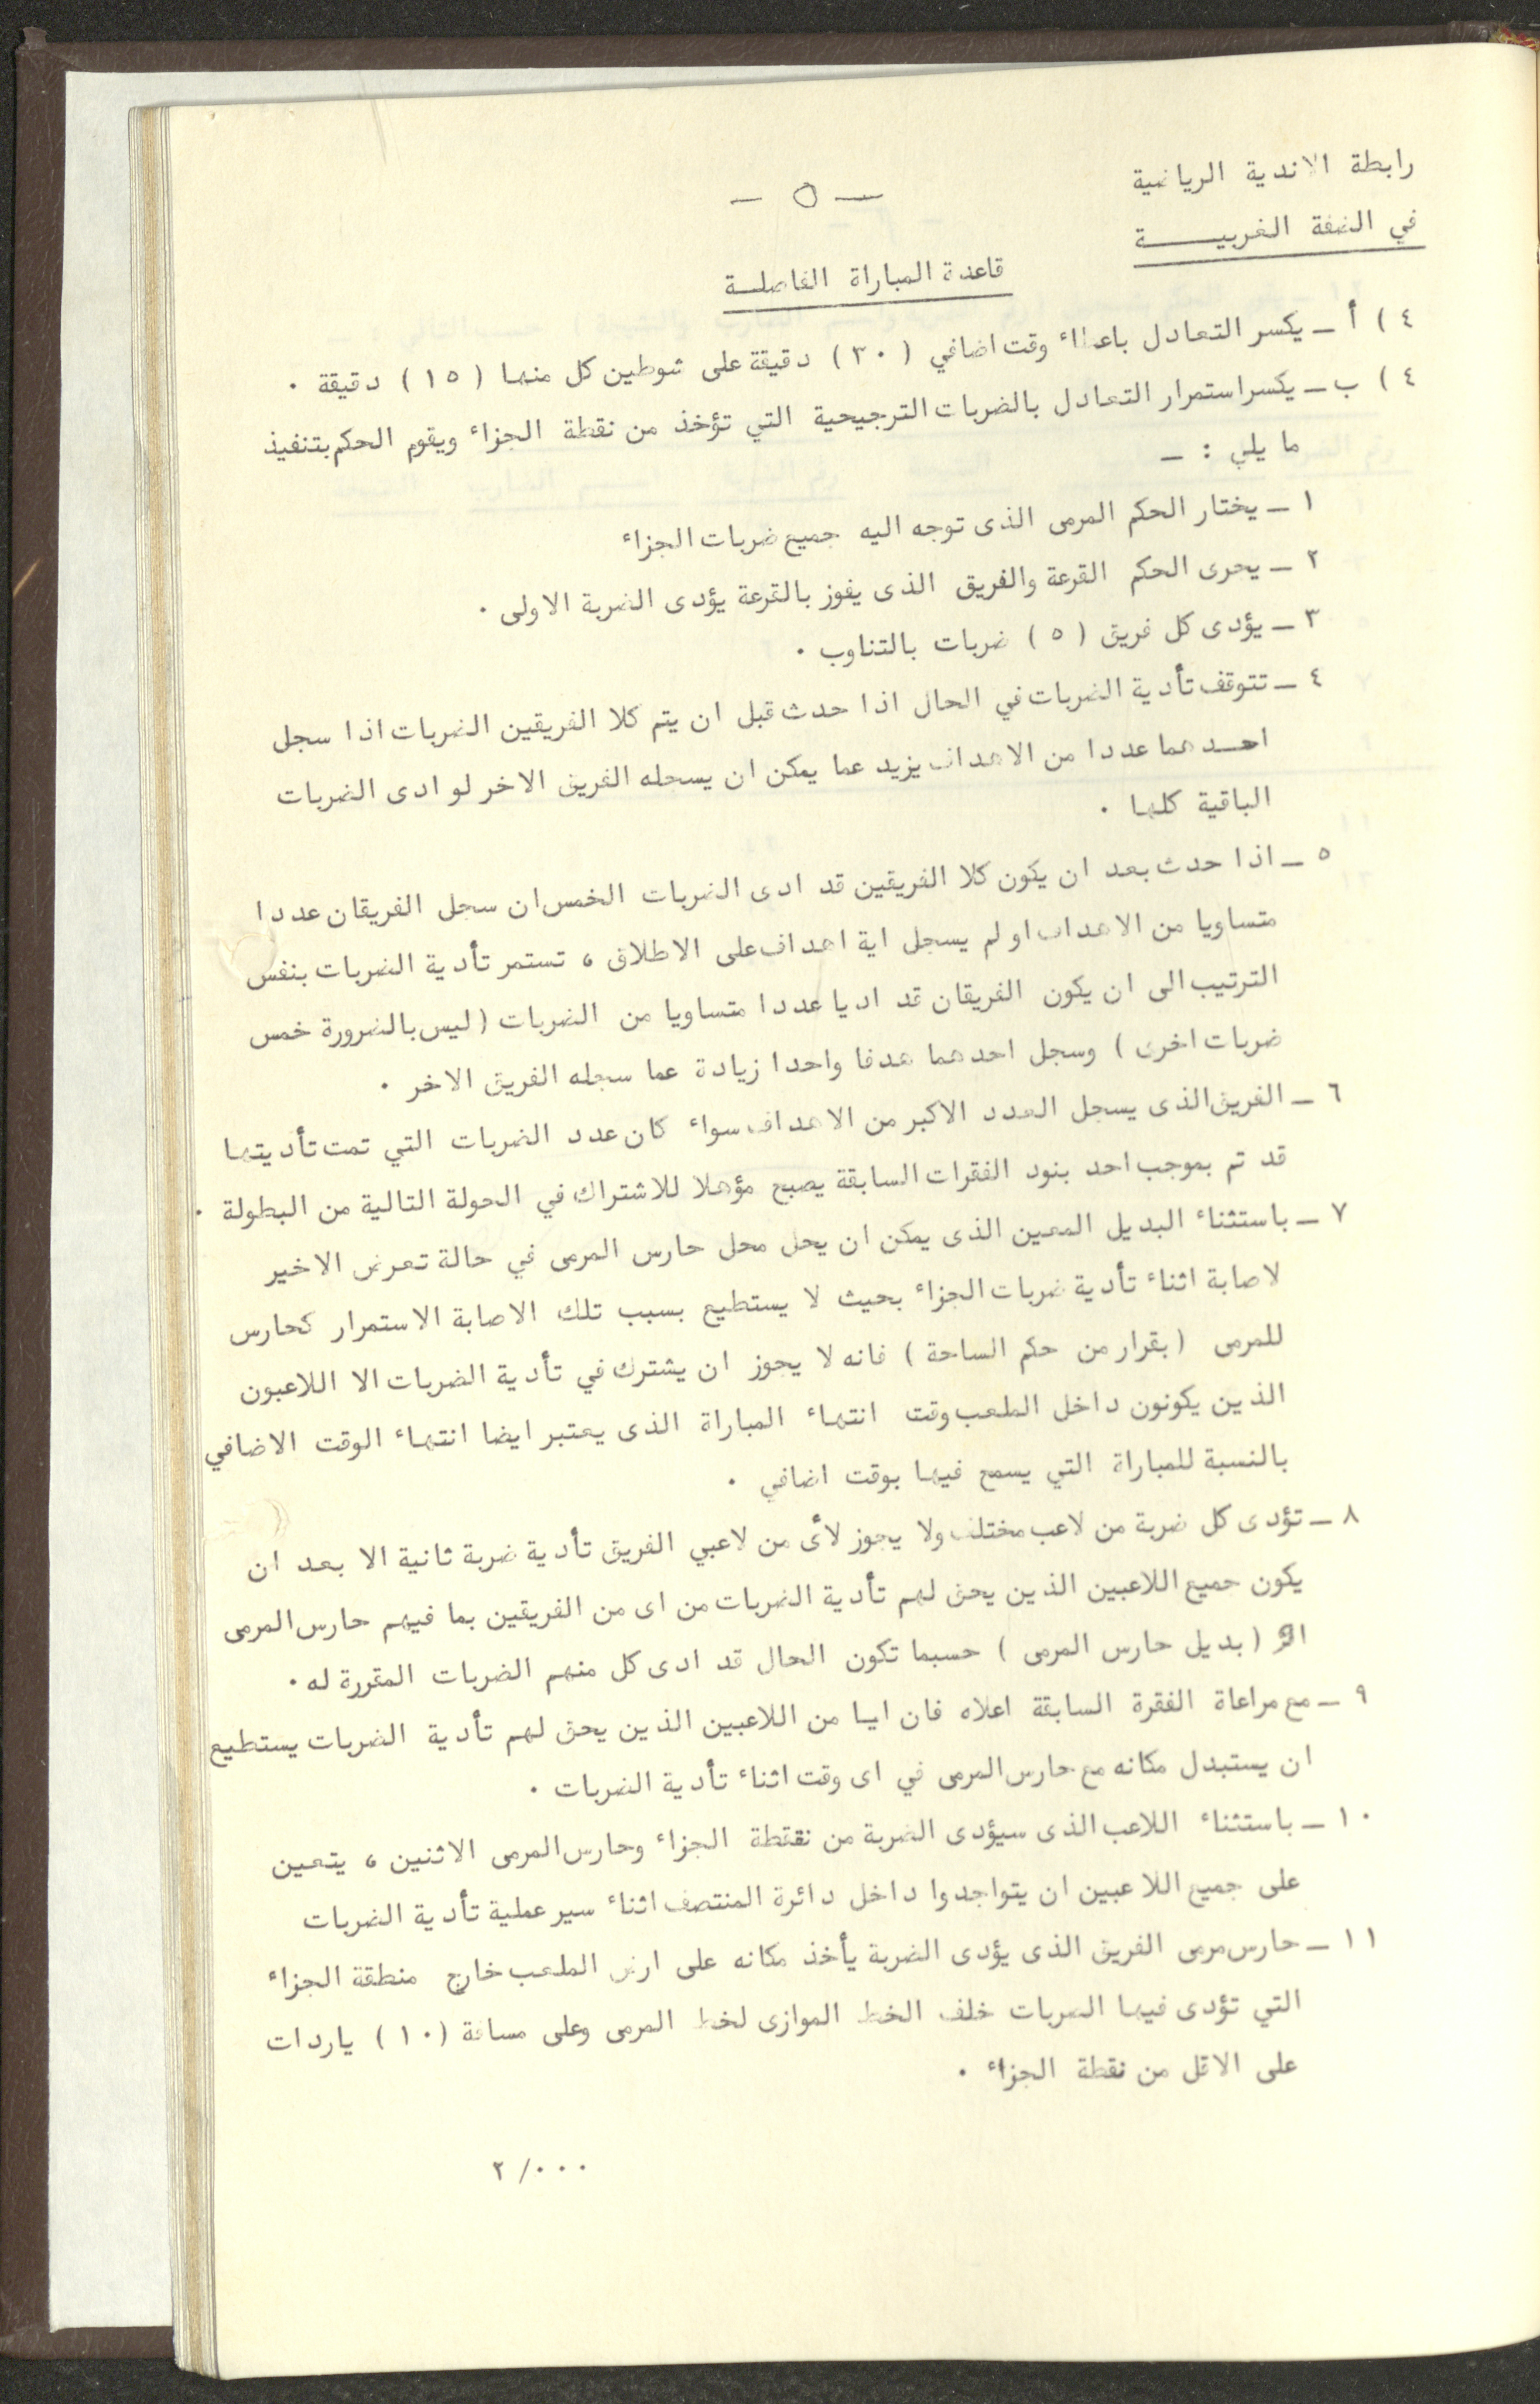 رابطة الاندية الرياضية
— ٥ —
في الضفة الغربيـــــــة
قاعدة المباراة الفاصلـــة
٤ ) أ ـ يكسر التعادل باعطاء وقت اضافي ( ٣٠ ) دقيقة على شوطين كل منها ( ١٥ ) دقيقة ٠
٤ ) ب ـ يكسر استمرار التعادل بالضربات الترجيحية التي تؤخذ من نقطة الجزاء ويقوم الحكم بتنفيذ
ما يلي : ـ
١ ـ يختار الحكم المرمى الذى توجه اليه جميع ضربات الجزاء
٢ ـ يجرى الحكم القرعة والفريق الذى يفوز بالقرعة يؤدى الضربة الاولى ٠
٣ ـ يؤدى كل فريق ( ٥ ) ضربات بالتناوب ٠
٤ ـ تتوقف تأدية الضربات في الحال اذا حدث قبل ان يتم كلا الفريقين الضربات اذا سجل
احـــدهما عددا من الاهداف يزيد عما يمكن ان يسجله الفريق الاخر لو ادى الضربات
الباقية كلها ٠
٥ ـ اذا حدث بعد ان يكون كلا الفريقين قد ادى الضربات الخمس ان سجل الفريقان عددا
متساويا من الاهداف او لم يسجل اية اهداف على الاطلاق ، تستمر تأدية الضربات بنفس
الترتيب الى ان يكون الفريقان قد اديا عددا متساويا من الضربات ( ليس بالضرورة خمس
ضربات اخرى ) وسجل احدهما هدفا واحدا زيادة عما سجله الفريق الاخر ٠
٦ ـ الفريق الذى يسجل العدد الاكبر من الاهداف سواء كان عدد الضربات التي تمت تأديتها
قد تم بموجب احد بنود الفقرات السابقة يصبح مؤهلا للاشتراك في الجولة التالية من البطولة ٠
٧ ـ باستثناء البديل المعين الذى يمكن ان يحل محل حارس المرمى في حالة تعرض الاخير
لاصابة اثناء تأدية ضربات الجزاء بحيث لا يستطيع بسبب تلك الاصابة الاستمرار كحارس
للمرمى ( بقرار من حكم الساحة ) فانه لا يجوز ان يشترك في تأدية الضربات الا اللاعبون
الذين يكونون داخل الملعب وقت انتهاء المباراة الذى يعتبر ايضا انتهاء الوقت الاضافي
بالنسبة للمباراة التي يسمح فيها بوقت اضافي ٠
٨ ـ تؤدى كل ضربة من لاعب مختلف ولا يجوز لأى من لاعبي الفريق تأدية ضربة ثانية الا بعد ان
يكون جميع اللاعبين الذين يحق لهم تأدية الضربات من اى من الفريقين بما فيهم حارس المرمى
او ( بديل حارس المرمى ) حسبما تكون الحال قد ادى كل منهم الضربات المقررة له ٠
٩ ـ مع مراعاة الفقرة السابقة اعلاه فان ايا من اللاعبين الذين يحق لهم تأدية الضربات يستطيع
ان يستبدل مكانه مع حارس المرمى في اى وقت اثناء تأدية الضربات ٠
١٠ ـ باستثناء اللاعب الذى سيؤدى الضربة من نقتطة الجزاء وحارس المرمى الاثنين ، يتعين
على جميع اللاعبين ان يتواجدوا داخل دائرة المنتصف اثناء سير عملية تأدية الضربات
١١ ـ حارس مرمى الفريق الذى يؤدى الضربة يأخذ مكانه على ارض الملعب خارج منطقة الجزاء
التي تؤدى فيها الضربات خلف الخط الموازى لخط المرمى وعلى مسافة ( ١٠ ) ياردات
على الاقل من نقطة الجزاء ٠
٢ / ٠ ٠ ٠